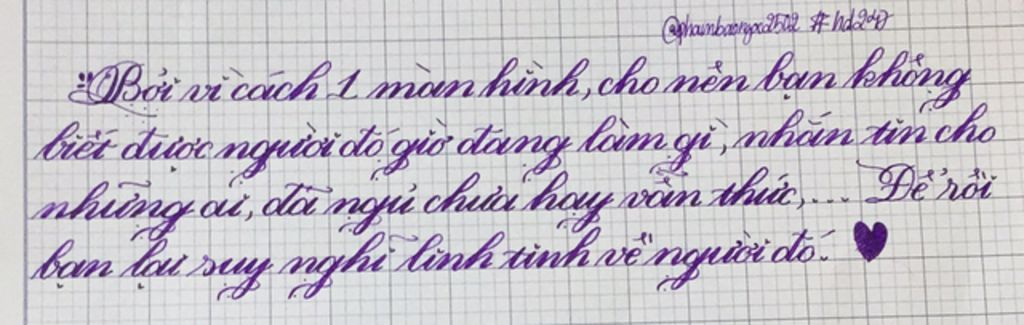 @phambaongoc2502 #hd247
"Bởi vì cách 1 màn hình, cho nên bạn không
biết được người đó giờ đang làm gì, nhắn tin cho
những ai, đã ngủ chưa hay vẫn thức,... Để rồi
bạn lại suy nghĩ linh tinh về người đó."